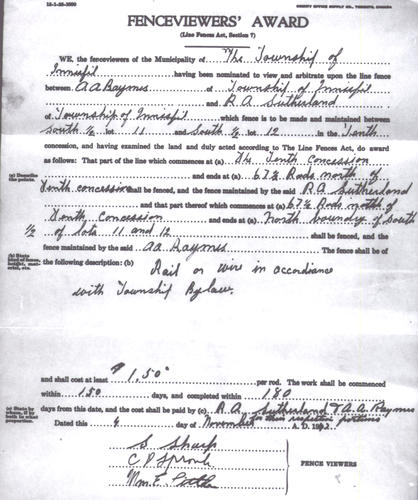 12-1-28-2000
COUNTY OFFICE SUPPLY CO., TORONTO, CANADA
FENCEVIEWERS' AWARD
(Line Fences Act, Section 7)
WE, the fenceviewers of the Municipality of The Township of
Innisfil having been nominated to view and arbitrate upon the line fence
between A A Raymes of Township of Innisfil
and R A Sutherland
of Township of Innisfil which fence is to be made and maintained between
South ½ lot 11 and South ½ lot 12 in the Tenth
concession, and having examined the land and duty acted according to The Line Fences Act, do award
as follows: That part of the line which commences at (a) The Tenth Concession
(a) Describe the points. and ends at (a) 67½ Rods north of
Tenth concession shall be fenced, and the fence maintained by the said R A Sutherland
and that part thereof which commences at (a) 67½ Rods north of
Tenth Concession and ends at (a) North boundry of south
½ of lots 11 and 12 shall be fenced, and the
fence maintained by the said A A Raymes The fence shall be of
(b) State kind of fence, height, material, etc. the following description: (b)
Rail or wire in accordance
with Township Bylaw.
and shall cost at least $1.50 per rod. The work shall be commenced
within 150 days, and completed within 180
(c) State by whom, if by both in what proportion. days from this date, and the cost shall be paid by (c) R. A. Sutherland & A. A. Raymes
for their respective portions
Dated this 4 day of November A. D. 19
S Sharp
C P Sproule
Wm. E.
FENCE VIEWERS